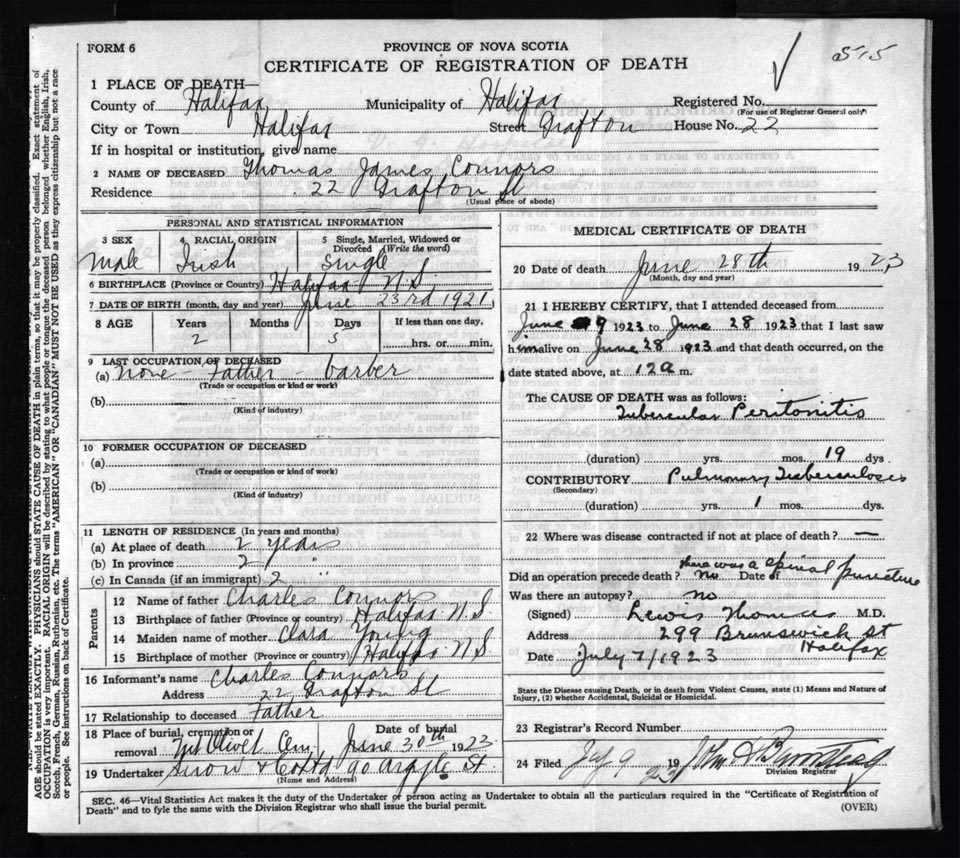 FORM 6
PROVINCE OF NOVA SCOTIA
515
CERTIFICATE OF REGISTRATION OF DEATH
1 PLACE OF DEATH—
County of Halifax Municipality of Halifax Registered No.
(For use of Registrar General only)
City or Town Halifax Street Grafton House No. 22
If in hospital or institution, give name
2 NAME OF DECEASED Thomas James Connors
Residence 22 Grafton St
(Usual place of abode)
PERSONAL AND STATISTICAL INFORMATION
3 SEX 4 RACIAL ORIGIN 5 Single, Married, Widowed or Divorced (Write the word)
Male Irish Single
6 BIRTHPLACE (Province or Country) Halifax N.S
7 DATE OF BIRTH (month, day and year) June 23rd 1921
8 AGE Years Months Days If less than one day,
2 5 hrs. or min.
9 LAST OCCUPATION OF DECEASED
(a) None - Father - barber
(Trade or occupation or kind or work)
(b)
(Kind of industry)
10 FORMER OCCUPATION OF DECEASED
(a)
(Trade or occupation or kind of work)
(b)
(Kind of industry)
11 LENGTH OF RESIDENCE (In years and months)
(a) At place of death 2 years
(b) In province 2 "
(c) In Canada (if an immigrant) 2
Parents
12 Name of father Charles Connors
13 Birthplace of father (Province or Country) Halifax N.S
14 Maiden name of mother Clara Young
15 Birthplace of mother (Province or country) Halifax N.S.
16 Informant's name Charles Connors
Address 22 Grafton St
17 Relationship to deceased Father
18 Place of burial, cremation or removal Mt Olivet Cem Date of burial June 30th 1923
19 Undertaker Snow & Co Ltd 90 Argyle St
(Name and Address)
MEDICAL CERTIFICATE OF DEATH
20 Date of death June 28th 1923
(Month, day and year)
21 I HEREBY CERTIFY, that I attended deceased from
June 9 1923 to June 28 1923 that I last saw
him alive on June 28 1923 and that death occurred, on the
date stated above, at 12 a m.
The CAUSE OF DEATH was as follows:
Tubercular Peritonitis
(duration) yrs. mos. 19 dys
CONTRIBUTORY Pulmonary Tuberculosis
(Secondary)
(duration) yrs. 1 mos. dys.
22 Where was disease contracted if not at place of death? —
there was a spinal puncture
Did an operation precede death? no Date of
Was there an autopsy? no
(Signed) Lewis Thomas M.D.
Address 299 Brunswick St
Halifax
Date July 7/1923
State the Disease causing Death, or in death from Violent Causes, state (1) Means and Nature of
Injury, (2) whether Accidental, Suicidal or Homicidal.
23 Registrar's Record Number
24 Filed July 9 1923
Division Registrar
SEC. 46—Vital Statistics Act makes it the duty of the Undertaker or person acting as Undertaker to obtain all the particulars required in the "Certificate of Registration of
Death" and to fyle the same with the Division Registrar who shall issue the burial permit.
(OVER)
AGE should be stated EXACTLY. PHYSICIANS should STATE CAUSE OF DEATH in plain terms, so that it may be properly classified. Exact statement of
OCCUPATION is very important. RACIAL ORIGIN will be described by stating to what people or tongue the deceased person belonged whether English, Irish,
Scotch, French, German, Russian, Ruthenian, etc. The terms "AMERICAN" OR "CANADIAN" MUST NOT BE USED as they express citizenship but not a race
or people. See instructions on back of Certificate.